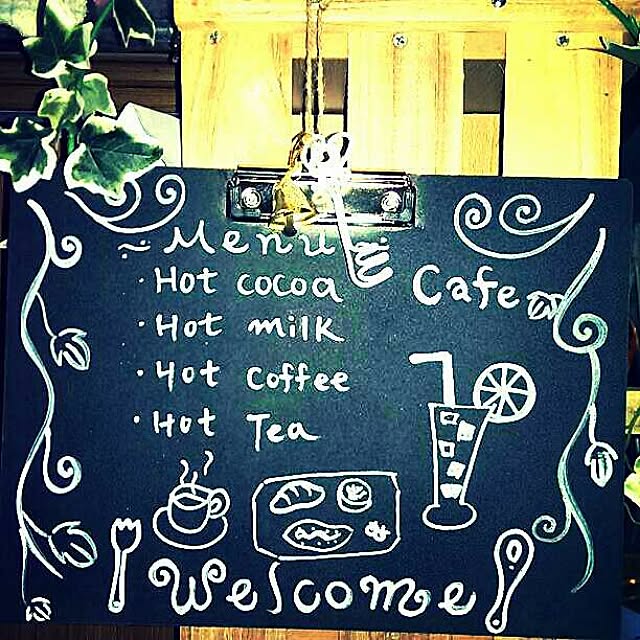 ~Menu~
Cafe
·Hot cocoa
·Hot milk
·Hot coffee
·Hot Tea
Welcome